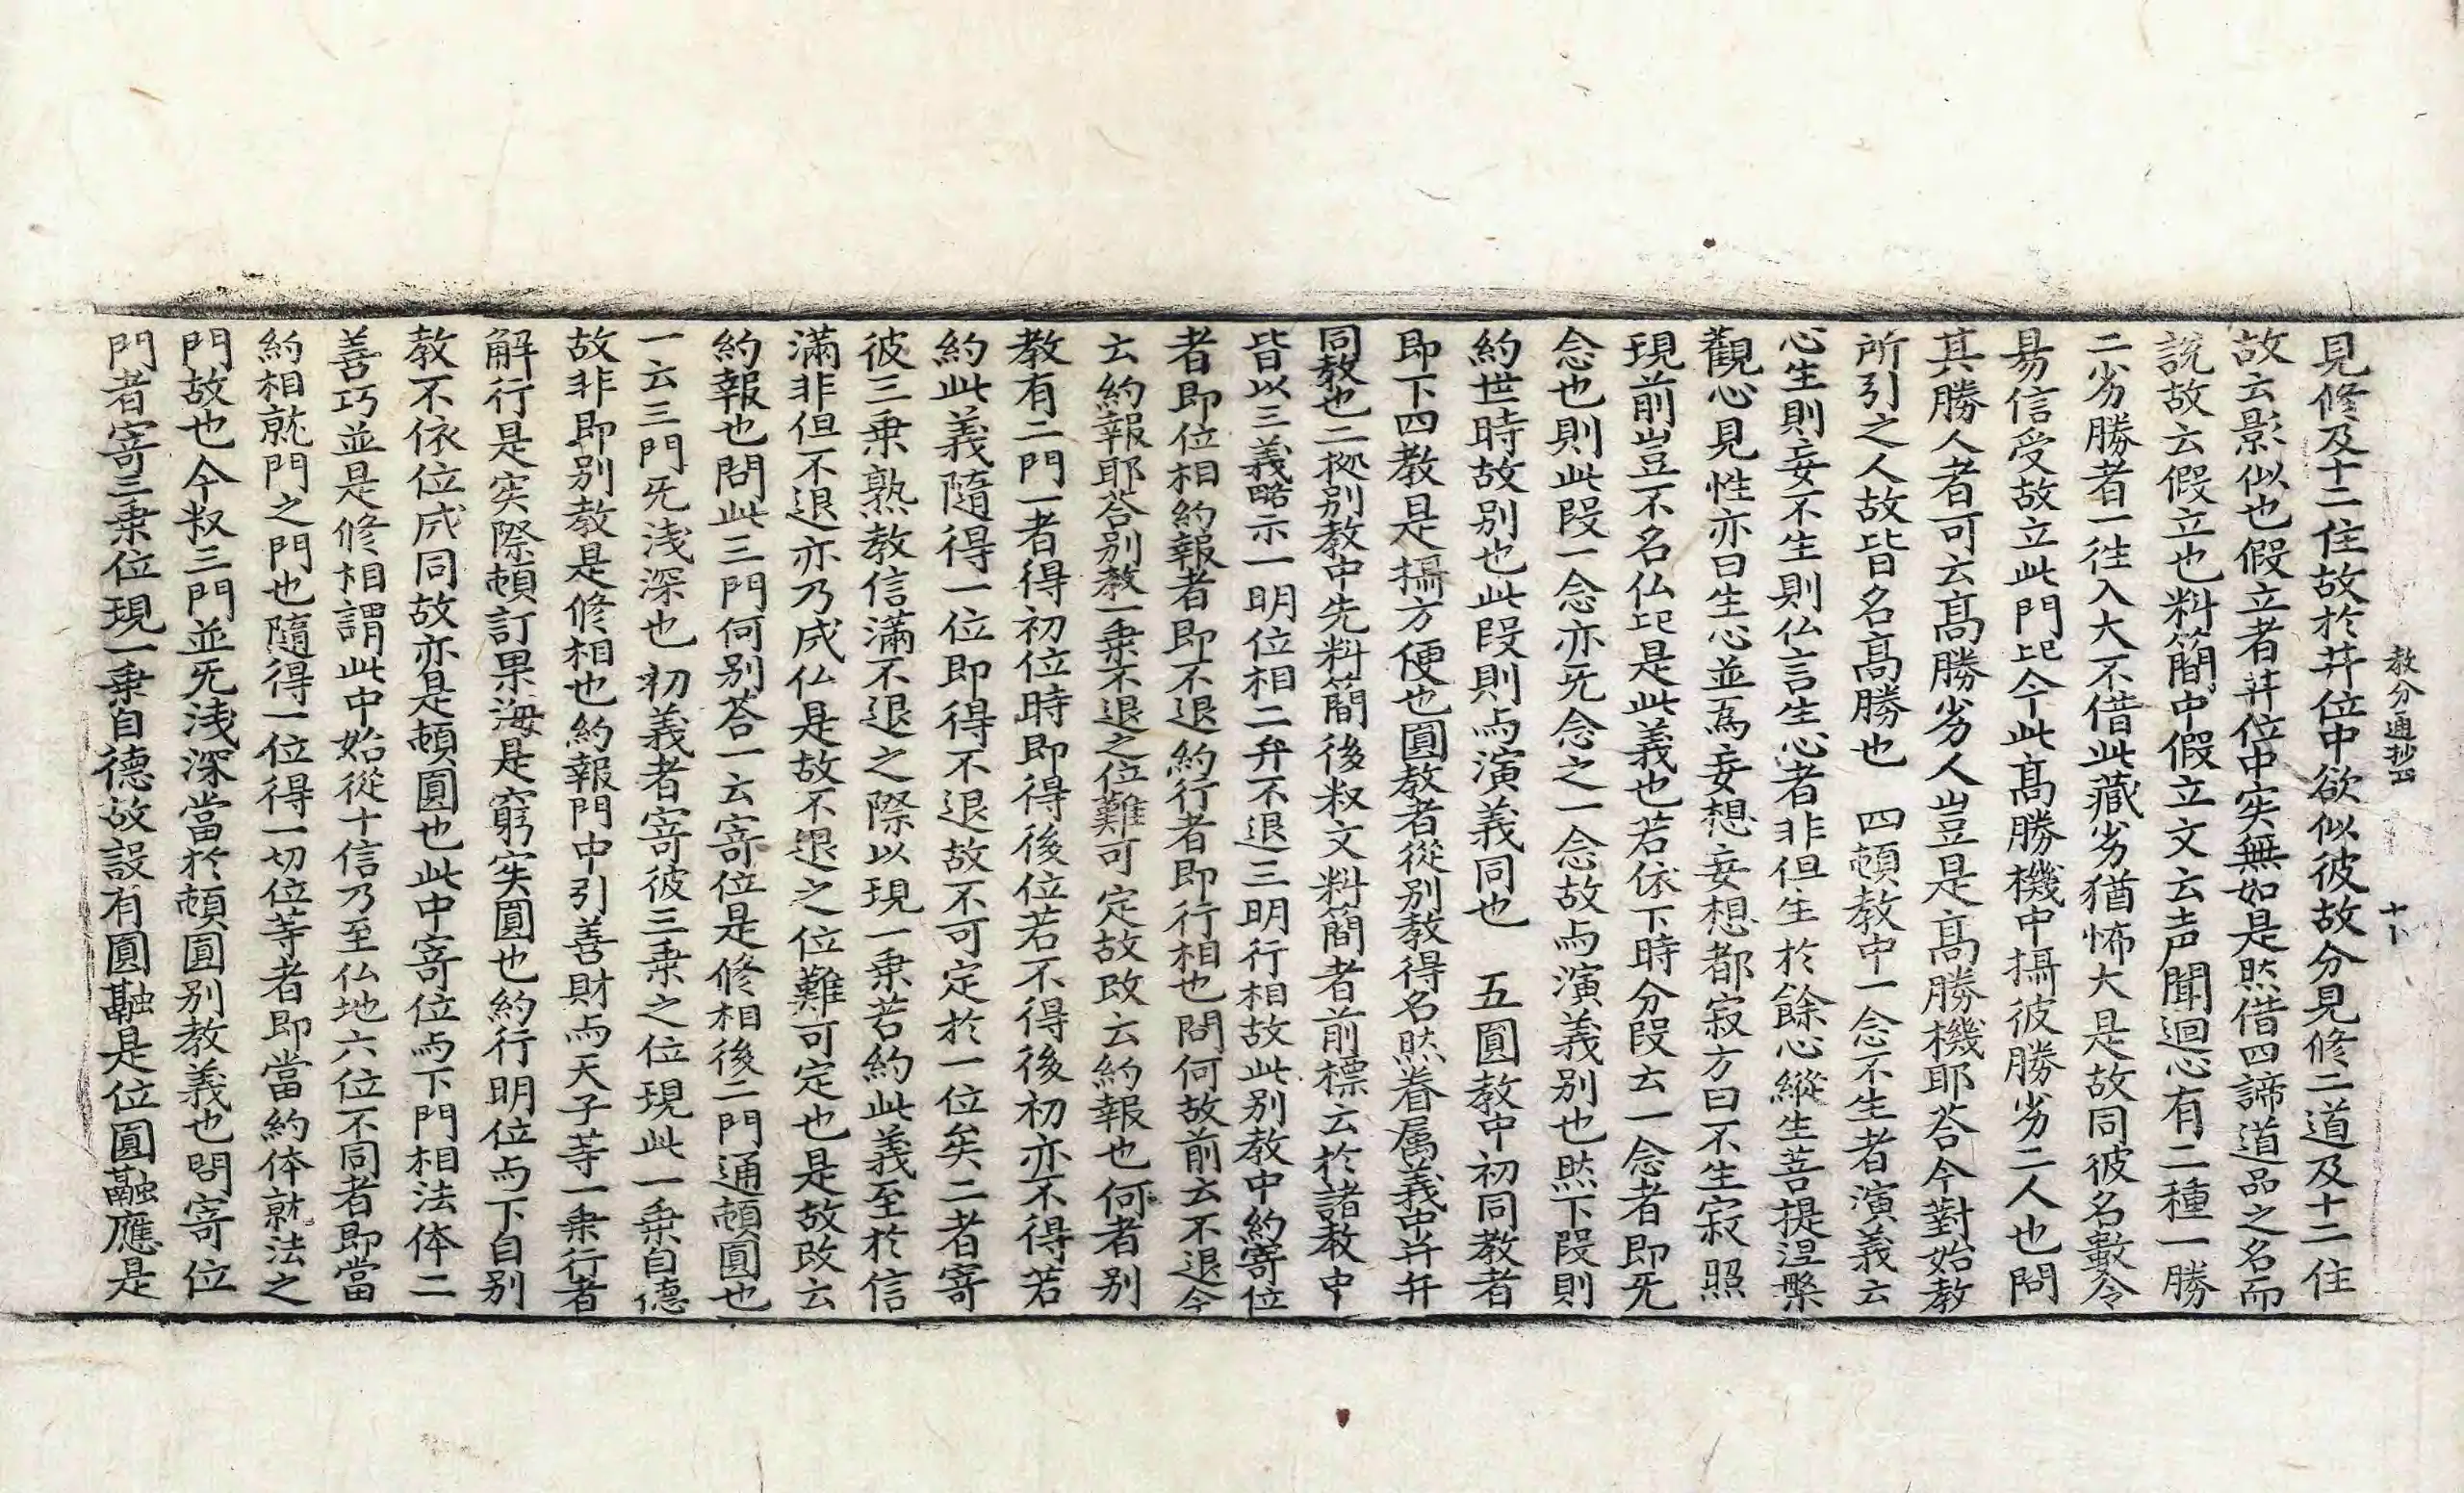 教分通抄四　十卜
見修及十二住故於䒑位中欲似彼故分見修二道及十二住
故云影似也假立者䒑位中実無如是然借四諦道品之名而
説故云假立也料簡中假立文云声聞迴心有二種一勝
二劣勝者一往入大不借此藏劣猶怖大是故同彼名數令
易信受故立此門記今此髙勝機中攝彼勝劣二人也問
其勝人者可云髙勝劣人豈是髙勝機耶荅今對始教
所引之人故皆名髙勝也　四頓教中一念不生者演義云
心生則妄不生則仏言生心者非但生於餘心縱生菩提涅槃
觀心見性亦曰生心並爲妄想妄想都寂方曰不生寂照
現前豈不名仏記是此義也若依下時分段云一念者即旡
念也則此段一念亦旡念之一念故与演義别也然下段則
約世時故别也此段則与演義同也　五圓教中初同教者
即下四教是攝方便也圓教者從别教得名然眷属義中并弁
同教也二㨿别教中先料簡後㕘文料簡者前標云於諸教中
皆以三義略示一明位相二弁不退三明行相故此别教中約寄位
者即位相約報者即不退約行者即行相也問何故前云不退今
云約報耶荅别教一乗不退之位難可定故改云約報也何者别
教有二門一者得初位時即得後位若不得後初亦不得若
約此義隨得一位即得不退故不可定於一位矣二者寄
彼三乗熟教信滿不退之際以現一乗若約此義至於信
滿非但不退亦乃成仏是故不退之位難可定也是故改云
約報也問此三門何别荅一云寄位是修相後二門通頓圓也
一云三門旡浅深也初義者寄彼三乗之位現此一乗自徳
故非即别教是修相也約報門中引善財与天子等一乗行者
解行是実際頓訂果海是窮実圓也約行明位与下自别
教不依位成同故亦是頓圓也此中寄位与下門相法体二
善巧並是修相謂此中始從十信乃至仏地六位不同者即當
約相就門之門也隨得一位得一切位等者即當約体就法之
門故也今㕘三門並旡浅深當於頓圓别教義也問寄位
門者寄三乗位現一乗自徳故設有圓融是位圓融應是